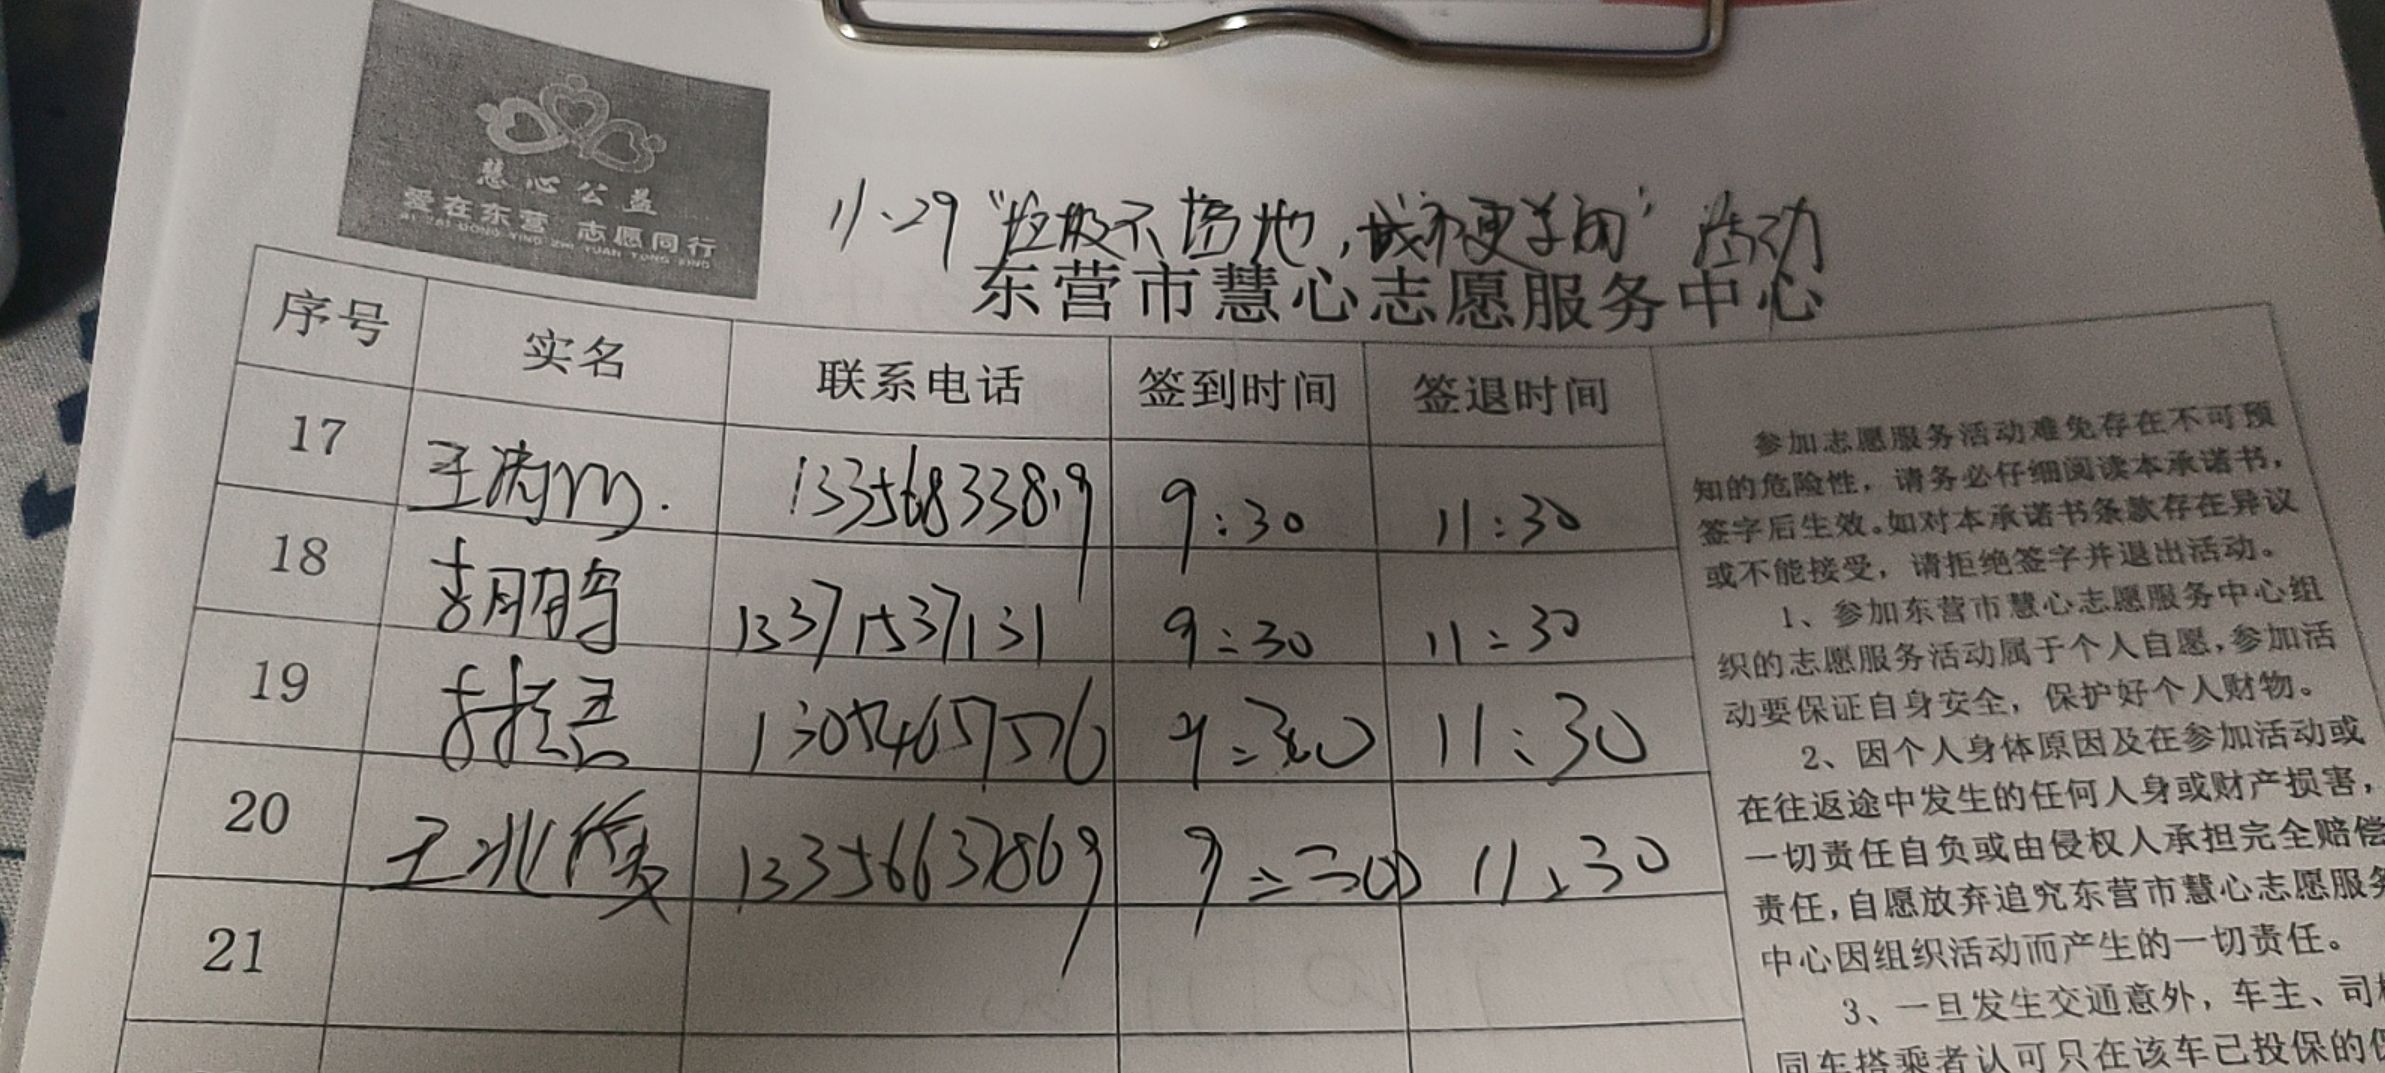 慧心公益
爱在东营 志愿同行
AI ZAI DONG YING ZHI YUAN TONG XING
11.29 "垃圾不落地,城市更美丽" 活动
东营市慧心志愿服务中心
序号 实名 联系电话 签到时间 签退时间
17 王 13356833819 9:30 11:30
18 胡鹏 13371537131 9:30 11:30
19 13054657576 9:30 11:30
20 王兆俊 13356637869 9:30 11:30
21
参加志愿服务活动难免存在不可预
知的危险性，请务必仔细阅读本承诺书，
签字后生效。如对本承诺书条款存在异议
或不能接受，请拒绝签字并退出活动。
1、参加东营市慧心志愿服务中心组
织的志愿服务活动属于个人自愿，参加活
动要保证自身安全，保护好个人财物。
2、因个人身体原因及在参加活动或
在往返途中发生的任何人身或财产损害，
一切责任自负或由侵权人承担完全赔偿
责任，自愿放弃追究东营市慧心志愿服务
中心因组织活动而产生的一切责任。
3、一旦发生交通意外，车主、司机
同车搭乘者认可只在该车已投保的保